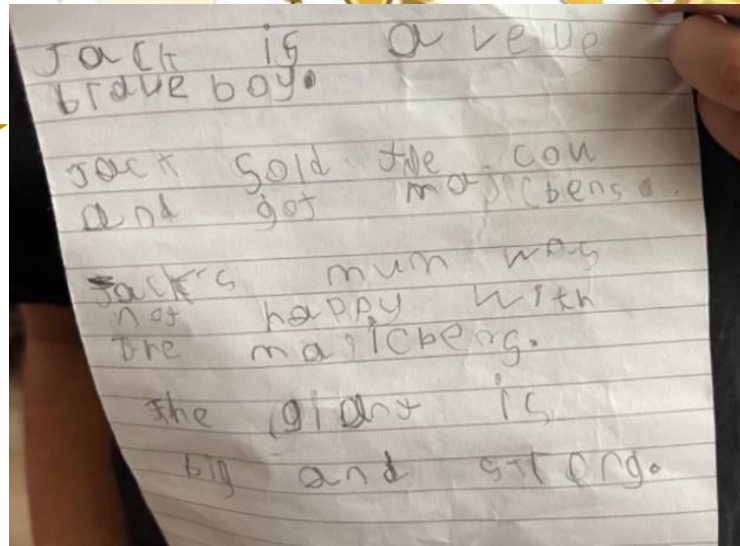 Jack is a veve
brave boy.
Jack Sold the cow
and got majicbens.
Jack's mum was
not happy with
the majicbens.
the giant is
big and strong.